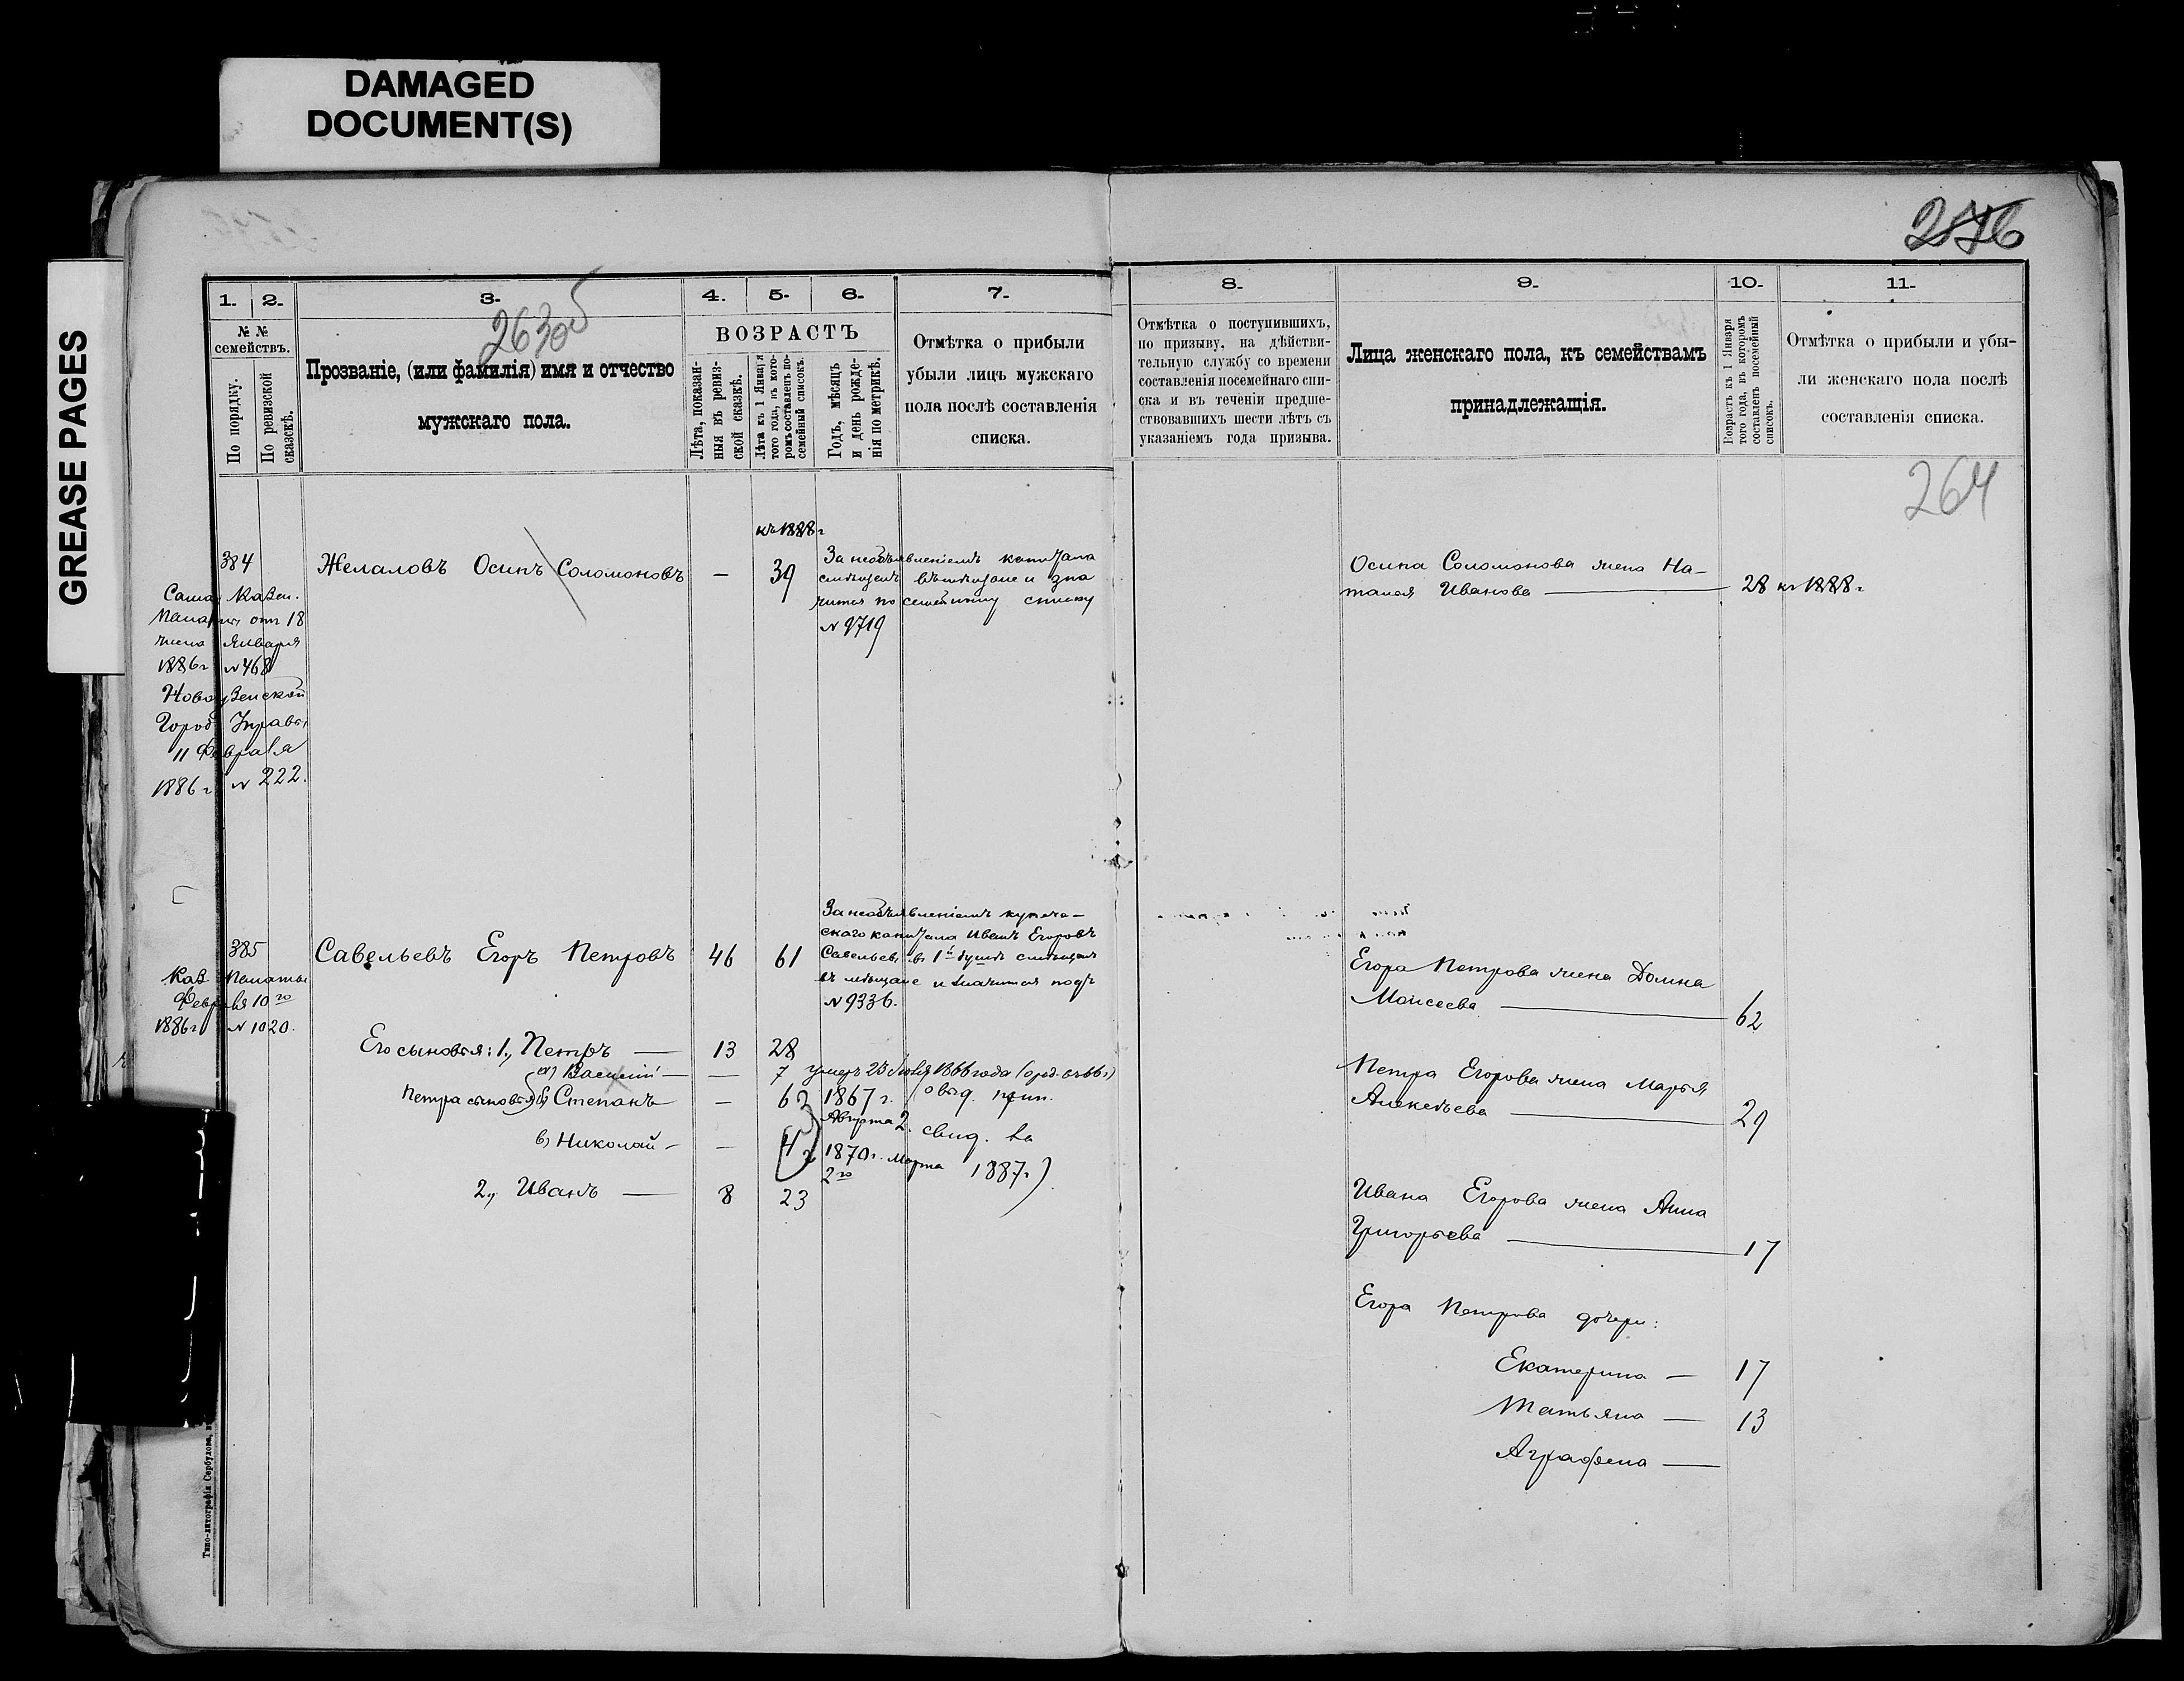 DAMAGED
DOCUMENT(S)
GREASE PAGES
276
1. 2. 3. 4. 5. 6. 7.
263об
№ №
семействъ.
По порядку.
По ревизской
сказскѣ.
Прозваніе, (или фамилія) имя и отчество
мужскаго пола.
ВОЗРАСТЪ
Лѣта, показан-
ныя въ ревиз-
ской сказкѣ.
Лѣта къ 1 Января
того года, въ кото-
ромъ составленъ по-
семейный списокъ.
Годъ, мѣсяцъ
и день рожде-
нія по метрикѣ.
Отмѣтка о прибыли
убыли лицъ мужскаго
пола послѣ составленія
списка.
къ 1888 г
384
Желаловъ Осипъ Соломоновъ — 39
За необъявленіемъ капитала
смѣщенъ въ мѣщане и зна
чится по семейному списку
№ 9719
Самар. Казен.
Палаты отъ 18
числа Января
1886 г № 468
Новоузенской
Город. Управы
11 Февраля
1886 г № 222.
385
Савельевъ Егоръ Петровъ 46 61
За необъявленіемъ купече-
скаго капитала Иванъ Егоровъ
Савельевъ въ 1й душѣ смѣщенъ
въ мѣщане и значится подъ
№ 9336.
Каз. Палаты
Февраля 10го
1886 г № 1020.
Его сыновья: 1., Петръ — 13 28
а) Василій — — 7 умеръ 23 Іюля 1866 года
Петра сыновья б) Степанъ — 6
1867 г.
Августа 2.
в) Николай — —
1870 г. Марта
2го
свид. за
1887 г)
2., Иванъ — 8 23
Типо-литографія Сербулова,
8. 9. 10. 11.
Отмѣтка о поступившихъ,
по призыву, на дѣйстви-
тельную службу со времени
составленія посемейнаго спи-
ска и въ теченіи предше-
ствовавшихъ шести лѣтъ съ
указаніемъ года призыва.
Лица женскаго пола, къ семействамъ
принадлежащія.
Возрастъ къ 1 Января
того года, въ которомъ
составленъ посемейный
списокъ.
Отмѣтка о прибыли и убы-
ли женскаго пола послѣ
составленія списка.
264
Осипа Соломонова жена На-
талья Иванова — 28 къ 1888 г
Егора Петрова жена Домна
Моисеева — 62
Петра Егорова жена Марья
Алексѣева — 29
Ивана Егорова жена Анна
Григорьева — 17
Егора Петрова дочери:
Екатерина — 17
Татьяна — 13
Аграфена —